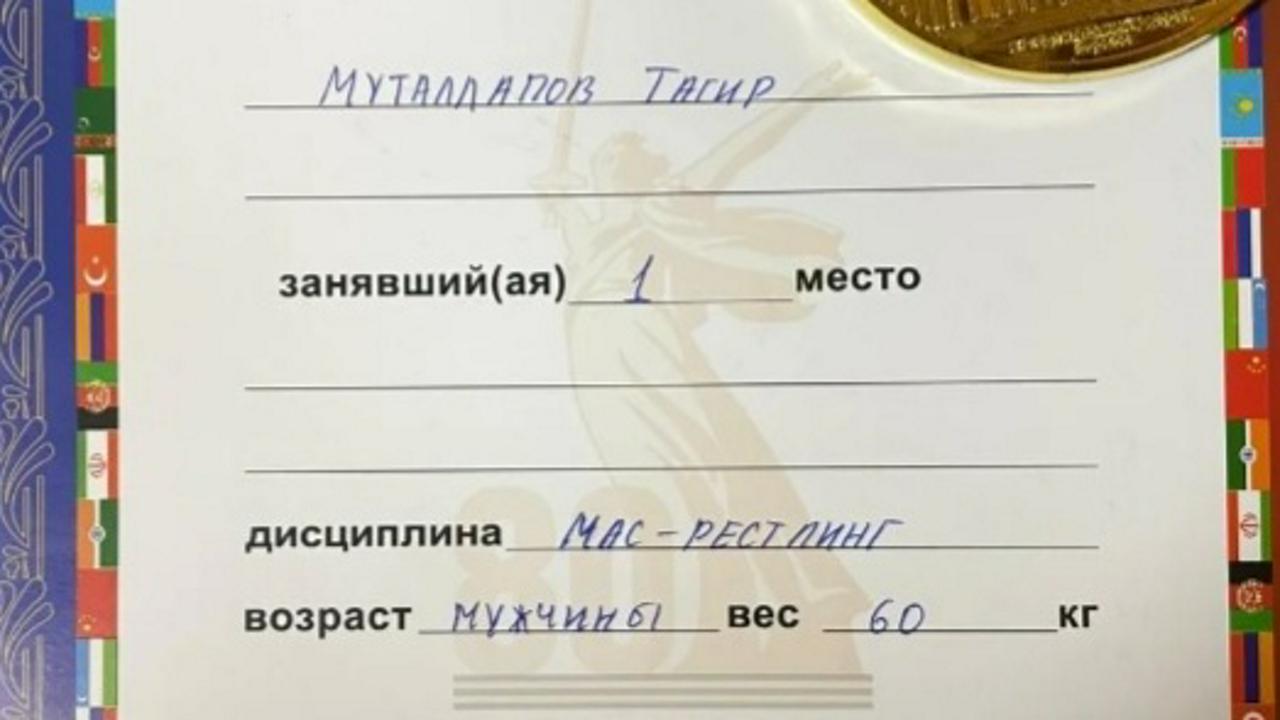 Муталлапов Тагир
занявший(ая) 1 место
дисциплина Мас-рестлинг
возраст мужчины вес 60 кг
80